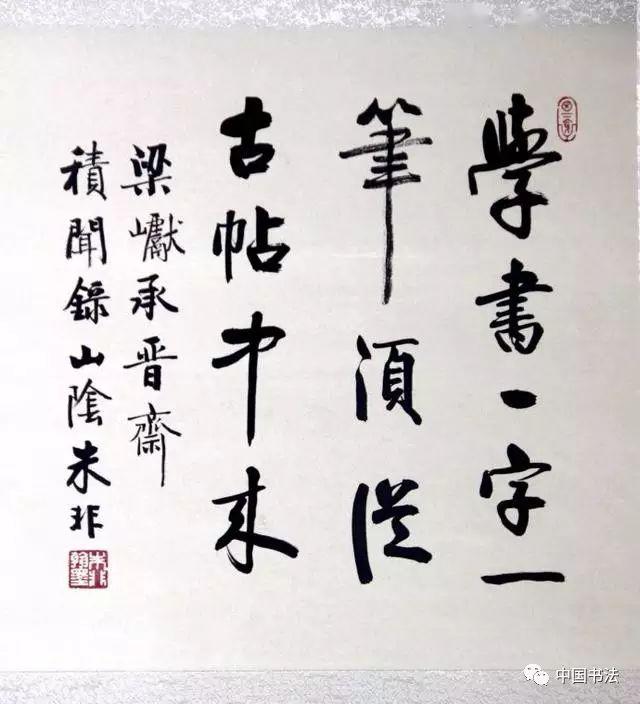 學書一字一
筆須從
古帖中来
梁巘承晋齋
積聞錄山陰朱非
中国书法